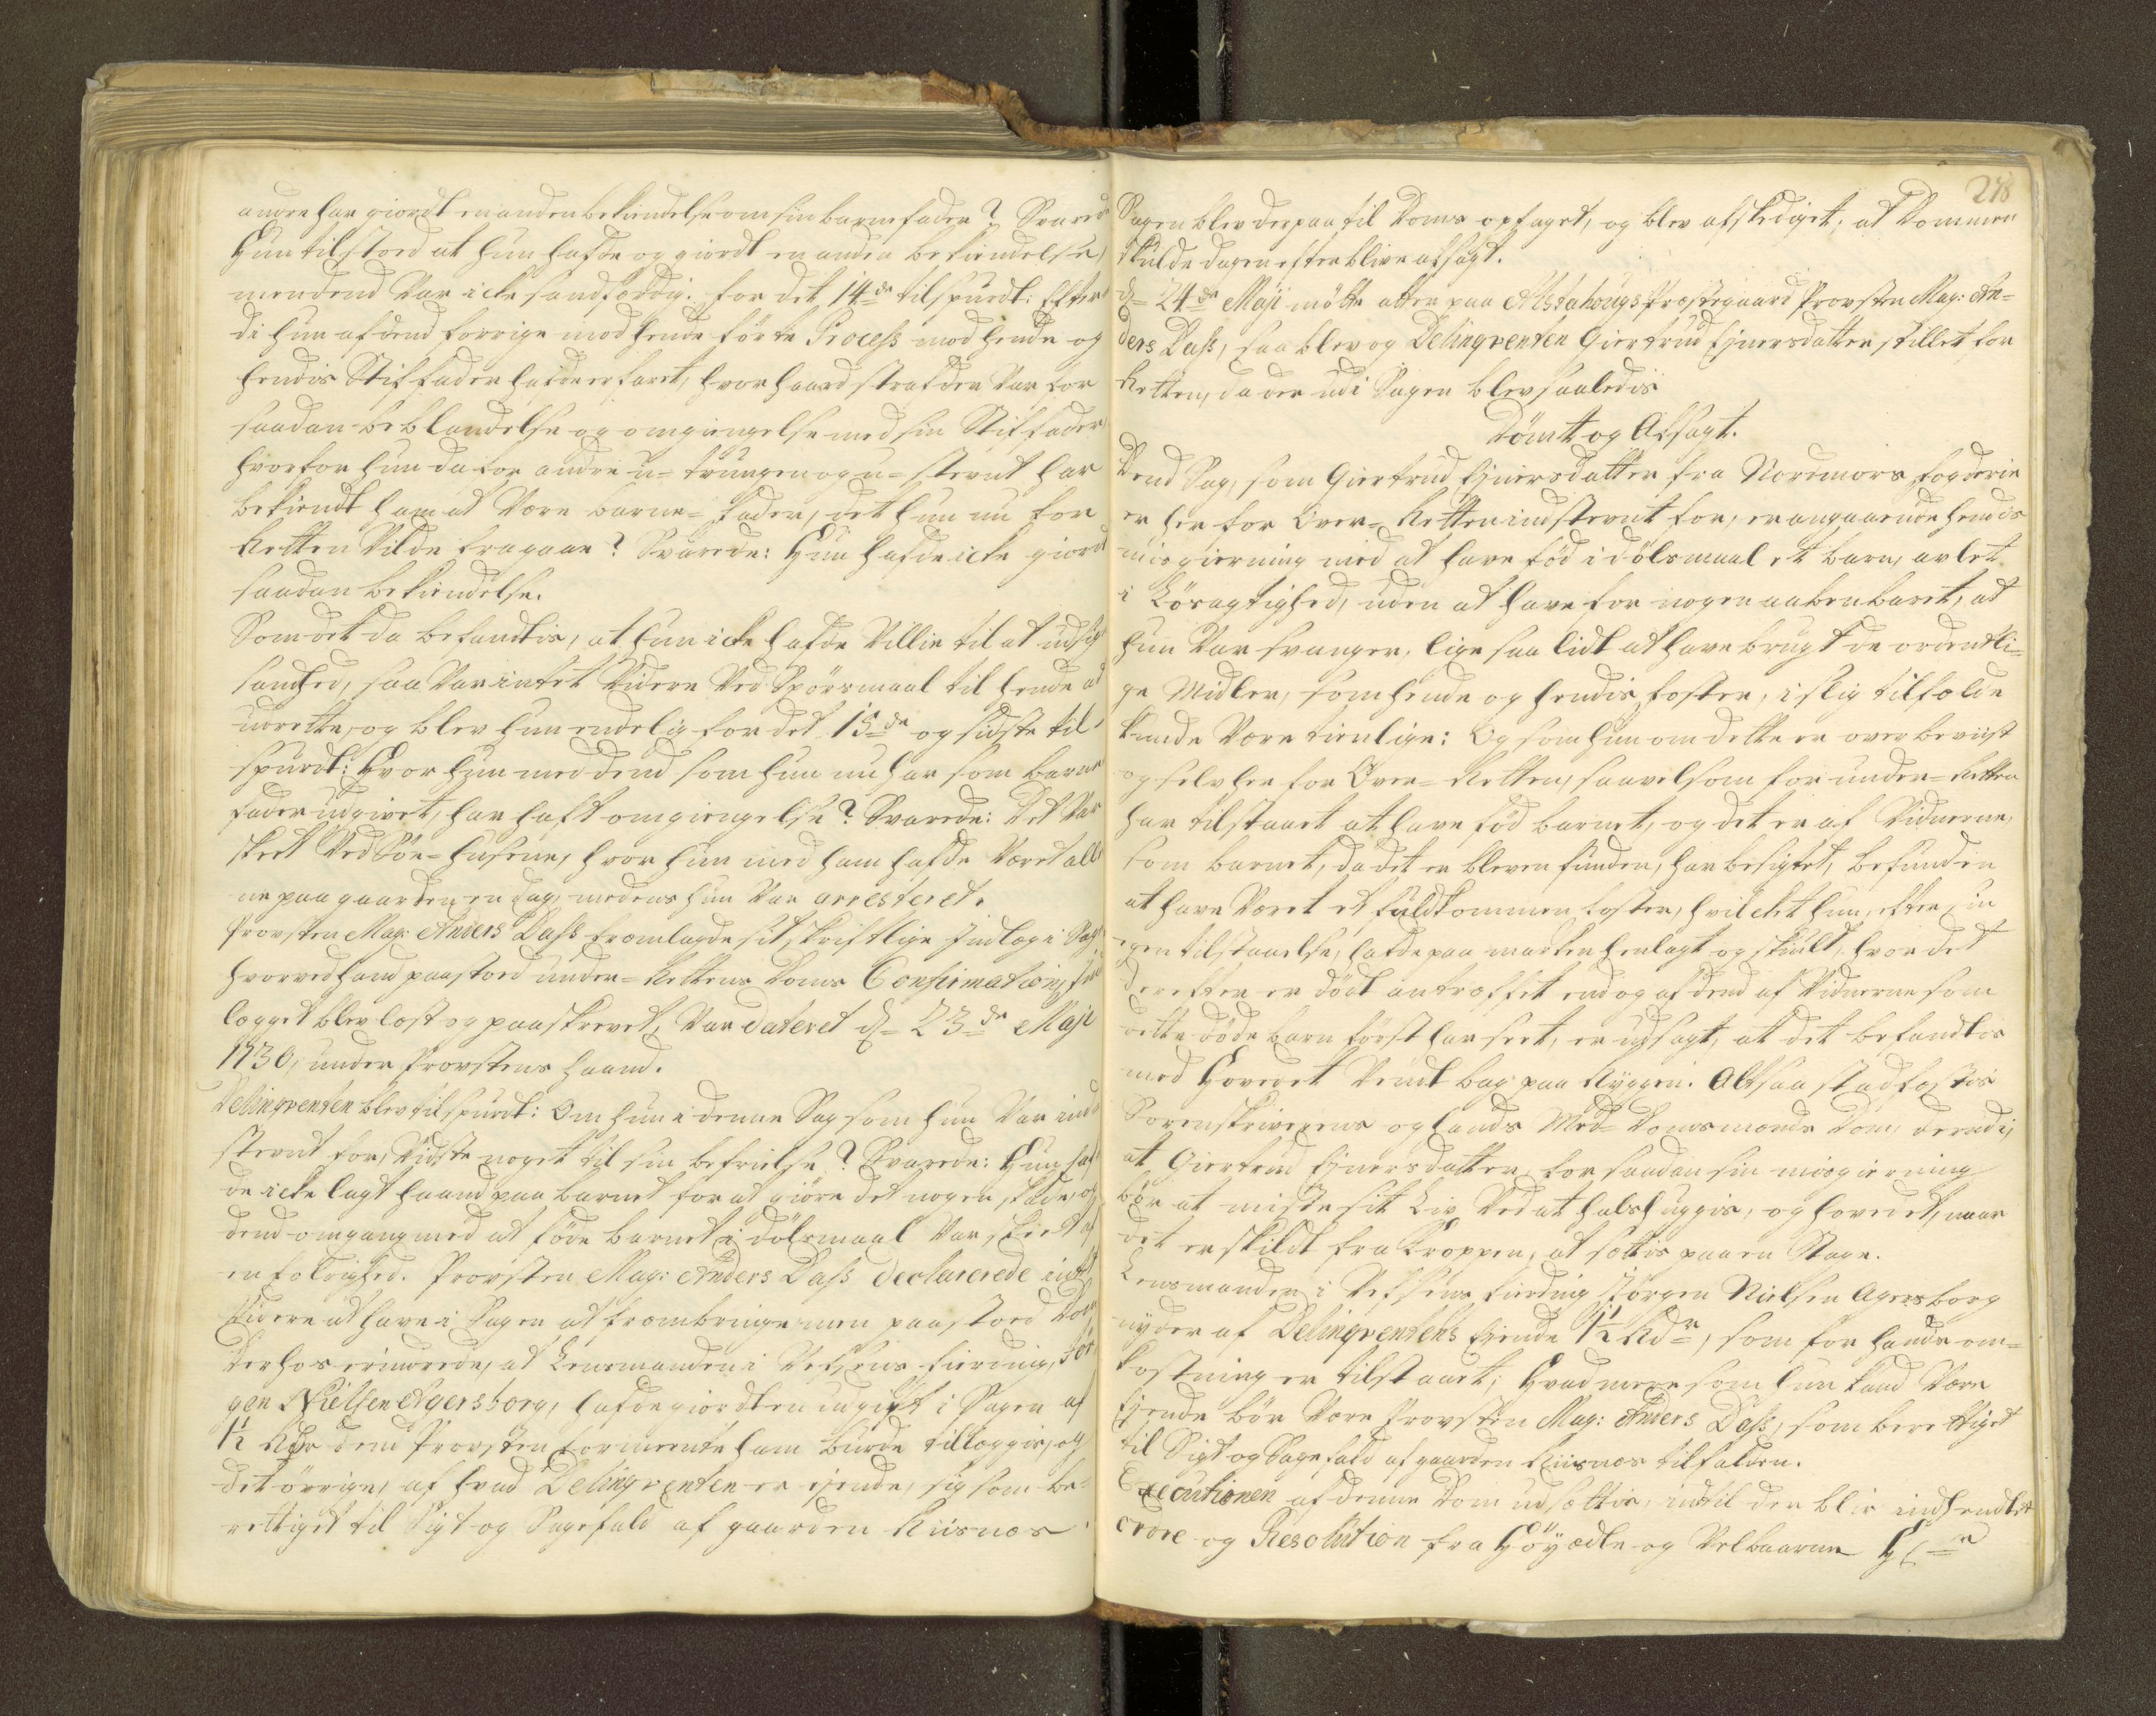 andre har giordt en anden bekiendelse om sin barnefader? Svarede
Hun tilstoed at hun hafde og giordt en anden bekiendelse,
men dend Var icke sandfærdig. for det 14de tilspurdt: Efter
di hun af dend forrige mod hende førte Process mod hende og
hendis Stiffader hafde erfaret, hvor haard straf der Var for
saadan beblandelse og omgiengelse med sin Stiffader,
hvorfor hun da for andre u-tvungen og u-stevnt har
bekiendt ham at Være barne-fader, det hun nu for
Retten Vilde fragaae? Svarede: Hun hafde icke giordt
saadan bekiendelse.
Som det da befandtis, at hun icke hafde Villie til at udsige
sandhed, saa Var intet Videre Ved Spørsmaal til hende at
udrette, og blev hun endelig for det 15de og sidste til
spurdt: Hvor hun med dend som hun nu har som barne
fader udgivet, har haft omgiengelse? Svarede: Det Var
skeet Ved Søe-husene, hvor hun med ham hafde Været alle
ne paa gaarden en dag, medens hun Var arresteret.
Provsten Mag: Anders Dass fremlagde sit skriftlige Indlæg i Sagen
hvorved hand paastoed under-Rettens Doms Confirmation, Ind
lægget blev læst og paaskrevet, Var dateret d= 23de Maji
1730, under Provstens haand.
Delinqventen blev tilspurdt: Om hun i denne Sag som hun Var ind
stevnt for, Vidste noget til sin befrielse? Svarede: Hun haf
de icke lagt haand paa barnet for at giøre det nogen skade, og
dend omgang med at føde barnet i dølsmaal Var skeet af
enfoldighed. Provsten Mag: Anders Dass declarerede intet
Videre at have i Sagen at frembringe men paastoed Dom,
derhos erindrede, at Lensmanden i Vefsens fierding, Jør
gen Nielsen Agersborg, hafde giordt en udgift i Sagen af
1½ Rdr dend Provsten formeente ham burde tillæggis, og
det øvrige, af hvad Delinqventen er eyende, sig som be-
rettiget til Sigt og Sagefald af gaarden Riisnæs.
278
Sagen blev derpaa til Doms optaget, og blev afskediget, at Dommen
skulde dagen efter blive afsagt.
d= 24de Maji møtte atter paa Alstahougs Præstegaard Provsten Mag: An-
ders Dass, saa blev og Delinqventen Giertrud Eynersdatter stillet for
Retten, da der udi Sagen blev saaledis
Dømt og Afsagt.
Dend Sag, som Giertrud Eynersdatter fra Nordmørs fogderie
er her for Over-Retten indstevnt for, er angaaende hendis
misgierning med at have fød i dølsmaal et barn, avlet
i Løsagtighed, uden at have for nogen aabenbaret, at
hun Var svanger, lige saa lidt at have brugt de ordentli-
ge Midler, som hende og hendis foster, i slig tilfælde
kunde Være tienlige: Og som hun om dette er overbeviist
og selv her for Over-Retten, saavelsom for under-Retten
har tilstaaet at have fød barnet, og det er af Vidnerne,
som barnet, da det er bleven funden, har besigtet, befunden
at have Været et fuldkommen foster, hvilcket hun, efter sin
egen tilstaaelse, hafde paa marken henlagt og skiult, hvor det
derefter er dødt antræffet end og af dend af Vidnerne som
dette døde barn først har seet, er udsagt, at det befandtis
med Hovedet Vendt bag paa Ryggen. Altsaa stadfæstis
Sorenskriverens og hands Med-Domsmænds Dom, derudi,
at Giertrud Eynersdatter, for saadan sin misgierning
bør at miste sit Liv Ved at halshuggis, og hovedet, naar
det er skildt fra Kroppen, at sættis paa en Stage.
Lensmanden i Vefsens fierding Jørgen Nielsen Agersborg
nyder af Delinqventens Eyende 1½ Rdr, som for hands om-
kostning er tilstaaet; Hvad meere som hun kand Være
Eyende bør Være Provsten Mag: Anders Dass, som berettiget
til Sigt og Sagefald af gaarden Riisnæs tilfalden.
Executionen af denne Dom udsættis, indtil der blir indhendtet
ordre og Resolution fra Høyædle og Velbaarne Hr